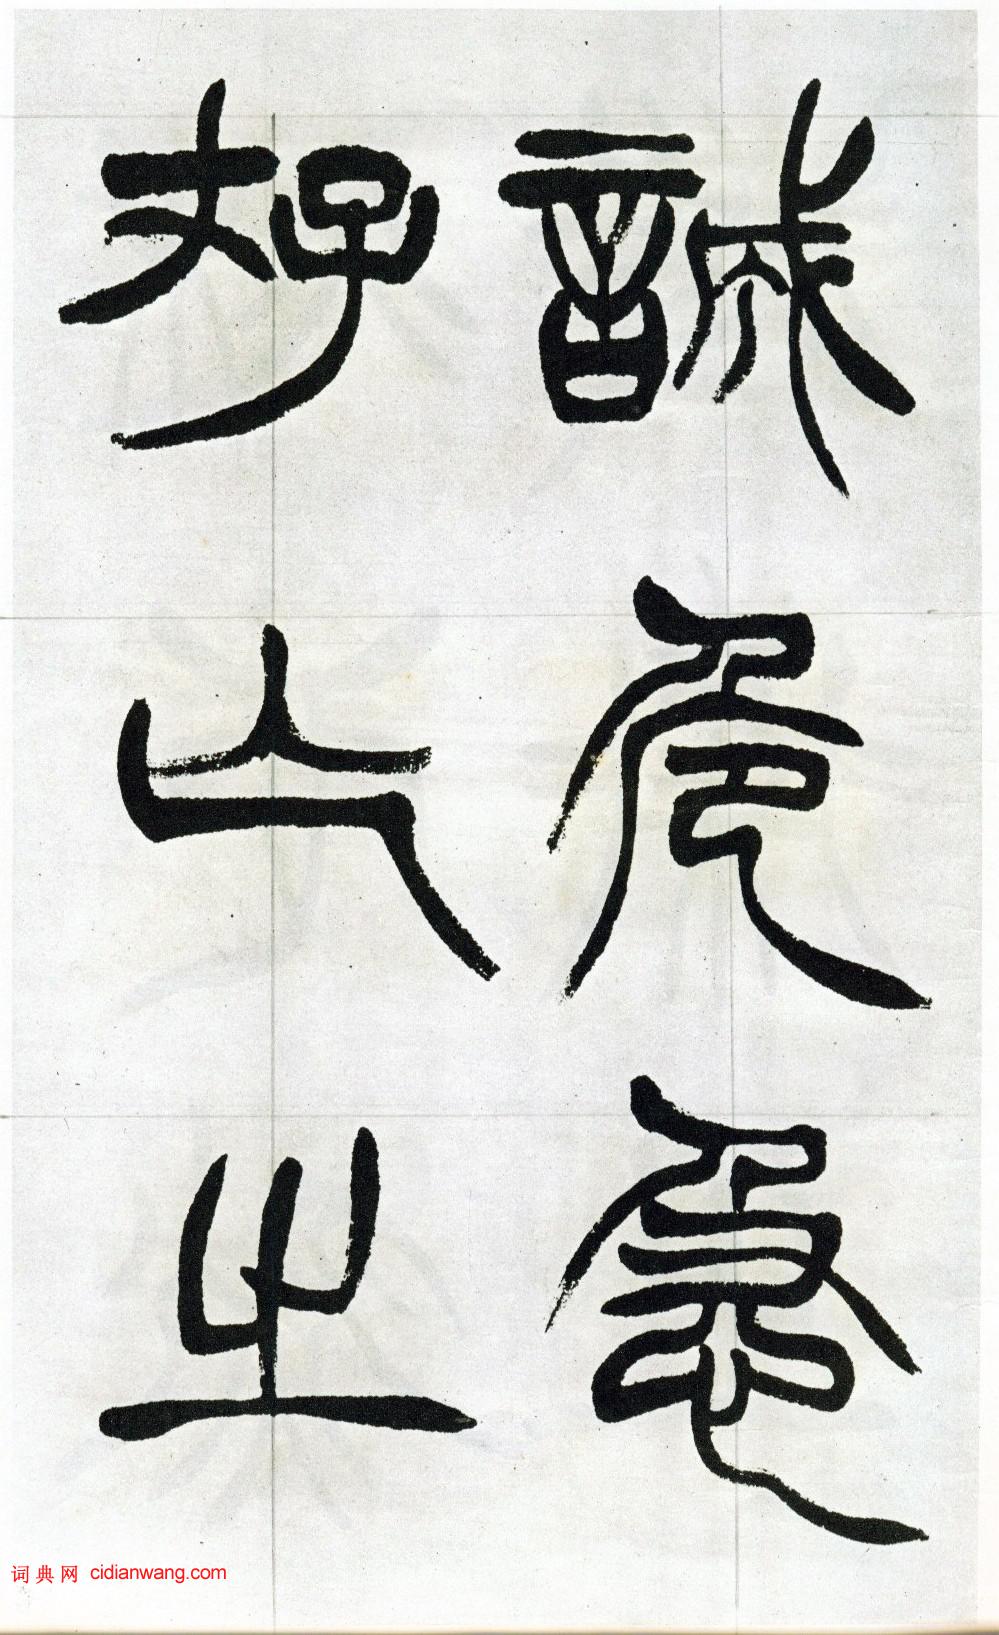 誠危急
存亡之
词典网 cidianwang.com